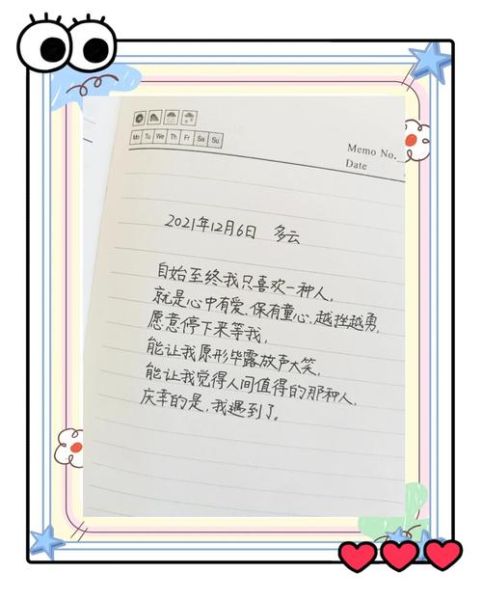 Mo Tu We Th Fr Sa Su
Memo No.
Date
2021年12月6日 多云
自始至终我只喜欢一种人,
就是心中有爱.保有童心.越挫越勇.
愿意停下来等我,
能让我原形毕露放声大笑,
能让我觉得人间值得的那种人.
庆幸的是,我遇到了。